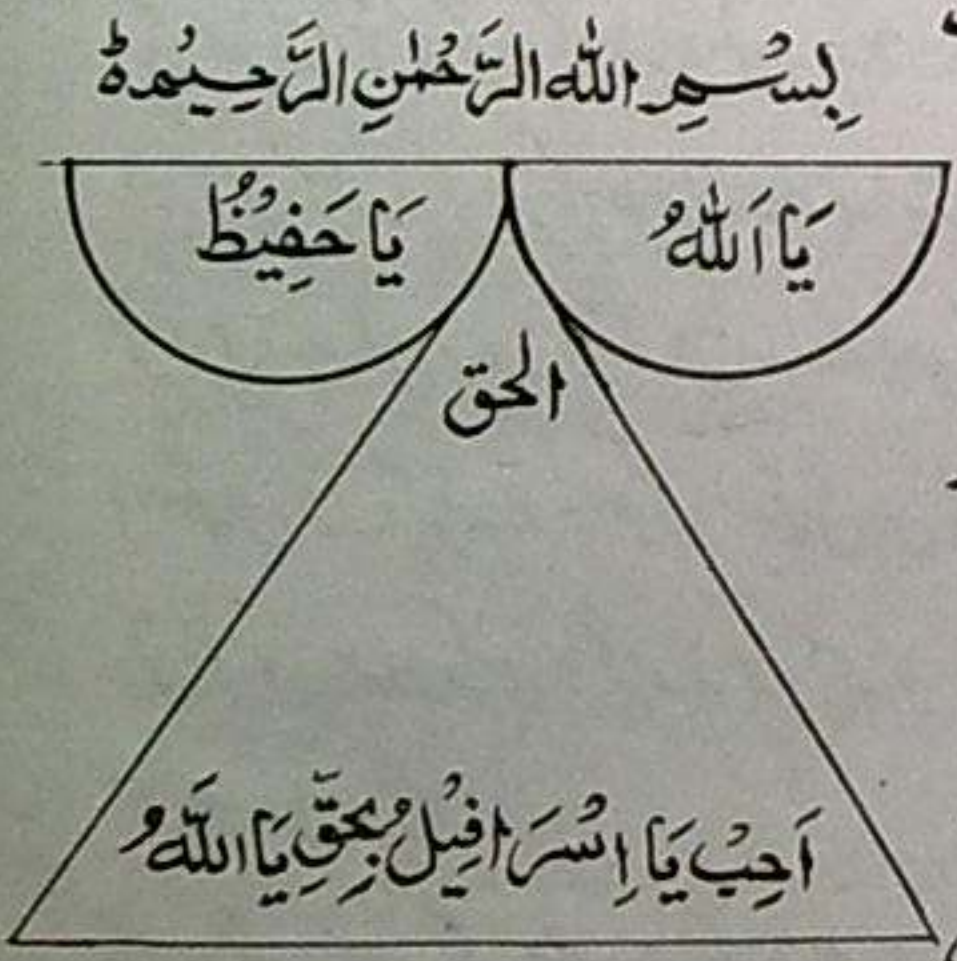 بِسْمِ اللهِ الرَّحْمٰنِ الرَّحِيْمِ ط
يَا اَللهُ يَا حَفِيْظُ
الحق
اَجِبْ يَا اِسْرَافِيْلُ بِحَقِّ يَا اَللّٰهُ